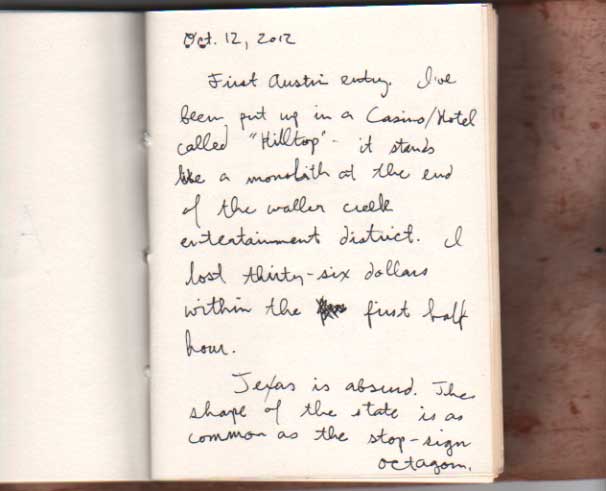 Oct. 12, 2012
First Austin entry. I've
been put up in a Casino/Hotel
called "Hilltop" - it stands
like a monolith at the end
of the waller creek
entertainment district. I
lost thirty-six dollars
within the first half
hour.
Texas is absurd. The
shape of the state is as
common as the stop-sign
octagon.